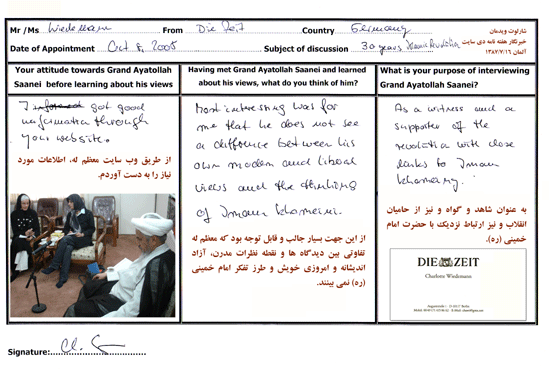 Mr /Ms Wiedemann From Die Zeit Country Germany
شارلوت ویدمان
خبرنگار هفته نامه دی سایت
آلمان ۱۳۸۷/۷/۱۶
Date of Appointment Oct 8, 2005 Subject of discussion 30 years Islamic Revolution
Your attitude towards Grand Ayatollah
Saanei before learning about his views
I informed got good
information through
your website.
از طریق وب سایت معظم له، اطلاعات مورد
نیاز را به دست آوردم.
Having met Grand Ayatollah Saanei and learned
about his views, what do you think of him?
Most interesting was for
me that he does not see
a difference between his
own modern and liberal
views and the thinking
of Imam Khomeini.
از این جهت بسیار جالب و قابل توجه بود که معظم له
تفاوتی بین دیدگاه ها و نقطه نظرات مدرن، آزاد
اندیشانه و امروزی خویش و طرز تفکر امام خمینی
(ره) نمی بینند.
What is your purpose of interviewing
Grand Ayatollah Saanei?
As a witness and a
supporter of the
revolution with close
links to Imam
Khomeiny.
به عنوان شاهد و گواه و نیز از حامیان
انقلاب و نیز ارتباط نزدیک با حضرت امام
خمینی (ره).
DIE ZEIT
Charlotte Wiedemann
Signature: